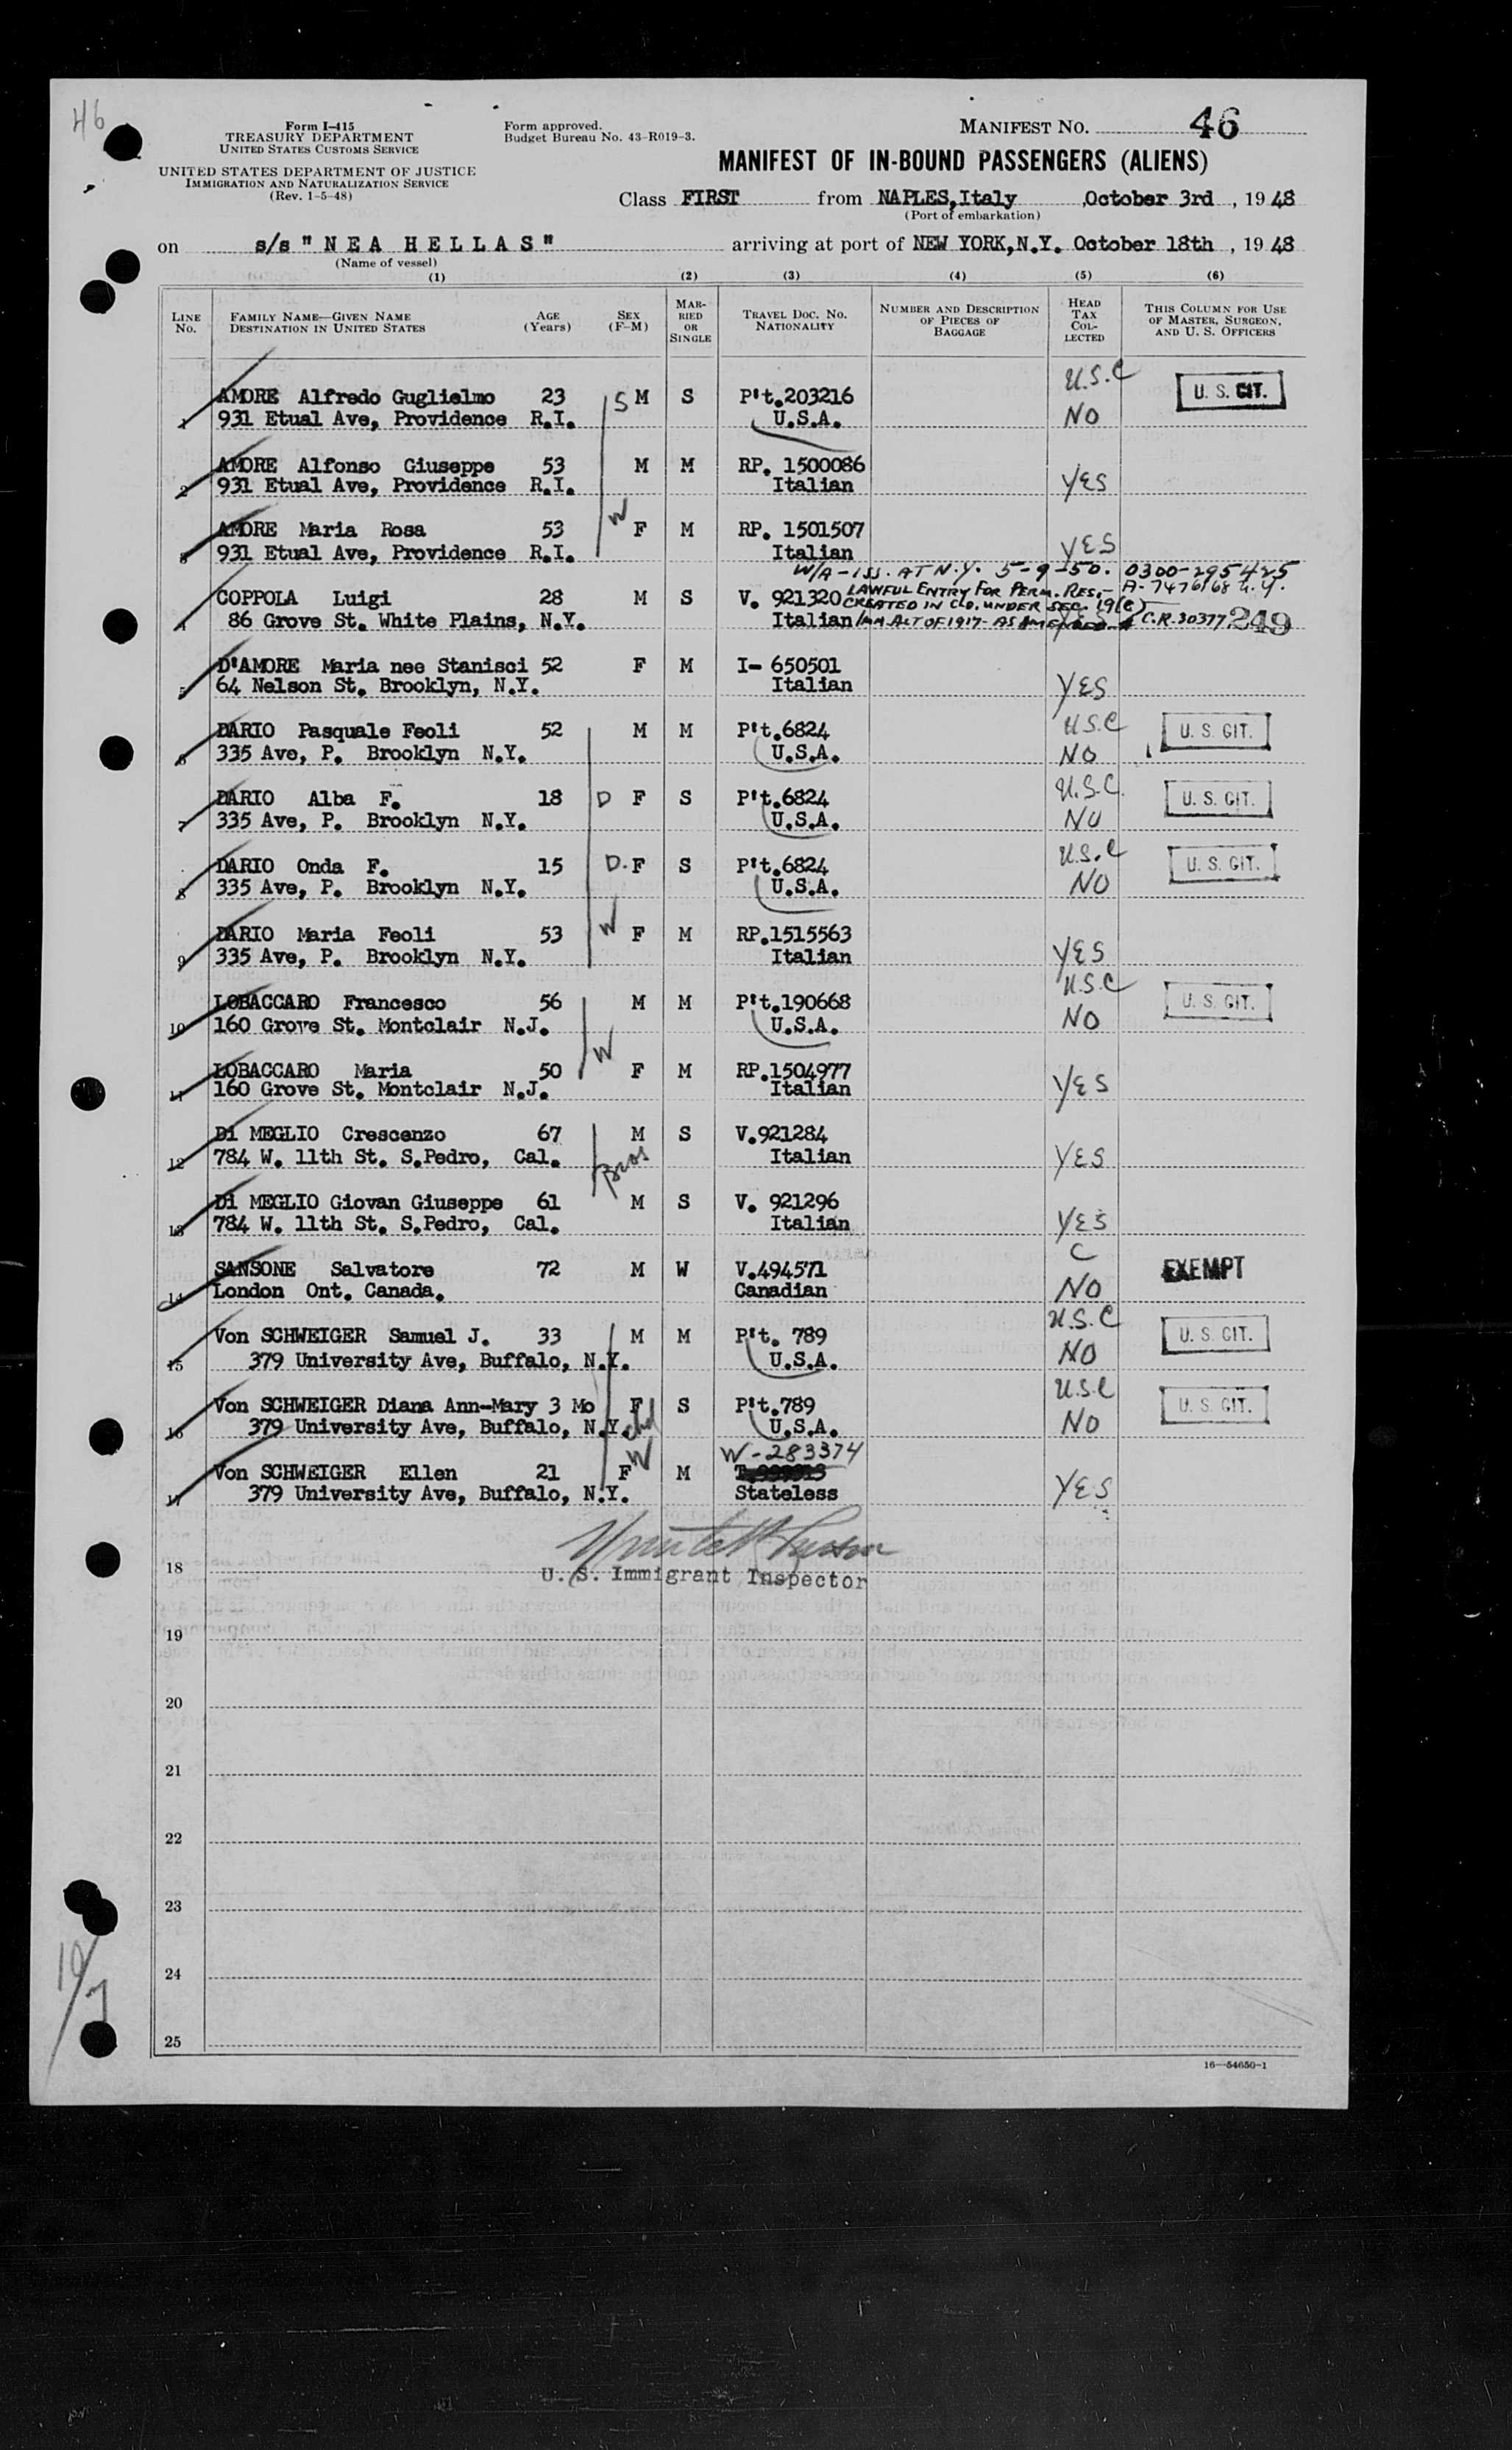 46
Form I-415
TREASURY DEPARTMENT
UNITED STATES CUSTOMS SERVICE
UNITED STATES DEPARTMENT OF JUSTICE
IMMIGRATION AND NATURALIZATION SERVICE
(Rev. 1-5-48)
Form approved.
Budget Bureau No. 43-R019-3.
MANIFEST NO. 46
MANIFEST OF IN-BOUND PASSENGERS (ALIENS)
Class FIRST from NAPLES,Italy ,October 3rd , 19 48
(Port of embarkation)
on s/s "N E A H E L L A S" arriving at port of NEW YORK,N.Y. October 18th , 19 48
(Name of vessel)
(1) (2) (3) (4) (5) (6)
LINE No. FAMILY NAME—GIVEN NAME DESTINATION IN UNITED STATES AGE (Years) SEX (F-M) MAR-RIED OR SINGLE TRAVEL DOC. NO. NATIONALITY NUMBER AND DESCRIPTION OF PIECES OF BAGGAGE HEAD TAX COL-LECTED THIS COLUMN FOR USE OF MASTER, SURGEON, AND U. S. OFFICERS
AMORE Alfredo Guglielmo 23 S M S P't.203216 U.S.C U. S. CIT.
1 931 Etual Ave, Providence R.I. U.S.A. NO
AMORE Alfonso Giuseppe 53 M M RP. 1500086
2 931 Etual Ave, Providence R.I. Italian YES
AMORE Maria Rosa 53 W F M RP. 1501507
3 931 Etual Ave, Providence R.I. Italian YES
W/A - ISS. AT N.Y. 5-9-50. 0300-295425
LAWFUL ENTRY FOR PERM. RES.- A-7476168 N.Y.
COPPOLA Luigi 28 M S V. 921320 CREATED IN C.O. UNDER SEC. 19(c)
4 86 Grove St. White Plains, N.Y. Italian IMM. ACT OF 1917- AS C.R. 30377 249
D'AMORE Maria nee Stanisci 52 F M I- 650501
5 64 Nelson St. Brooklyn, N.Y. Italian YES
DARIO Pasquale Feoli 52 M M P't.6824 U.S.C U. S. CIT.
6 335 Ave, P. Brooklyn N.Y. U.S.A. NO
DARIO Alba F. 18 D F S P't.6824 U.S.C. U. S. CIT.
7 335 Ave, P. Brooklyn N.Y. U.S.A. NO
DARIO Onda F. 15 D. F S P't.6824 U.S.C U. S. CIT.
8 335 Ave, P. Brooklyn N.Y. U.S.A. NO
DARIO Maria Feoli 53 W F M RP.1515563
9 335 Ave, P. Brooklyn N.Y. Italian YES
LOBACCARO Francesco 56 M M P't.190668 U.S.C U. S. CIT.
10 160 Grove St. Montclair N.J. U.S.A. NO
LOBACCARO Maria 50 W F M RP.1504977
11 160 Grove St. Montclair N.J. Italian YES
Di MEGLIO Crescenzo 67 M S V.921284
12 784 W. 11th St. S.Pedro, Cal. Bros Italian YES
Di MEGLIO Giovan Giuseppe 61 M S V. 921296
13 784 W. 11th St. S.Pedro, Cal. Italian YES
SANSONE Salvatore 72 M W V.494571 C EXEMPT
14 London Ont. Canada. Canadian NO
Von SCHWEIGER Samuel J. 33 M M P't. 789 U.S.C U. S. CIT.
15 379 University Ave, Buffalo, N.Y. U.S.A. NO
Von SCHWEIGER Diana Ann-Mary 3 Mo F S P't.789 U.S.C U. S. CIT.
16 379 University Ave, Buffalo, N.Y. chd U.S.A. NO
W-283374
Von SCHWEIGER Ellen 21 F W M
17 379 University Ave, Buffalo, N.Y. Stateless YES
18 U. S. Immigrant Inspector
19
20
21
22
23
24
25
10/7
16—54650-1